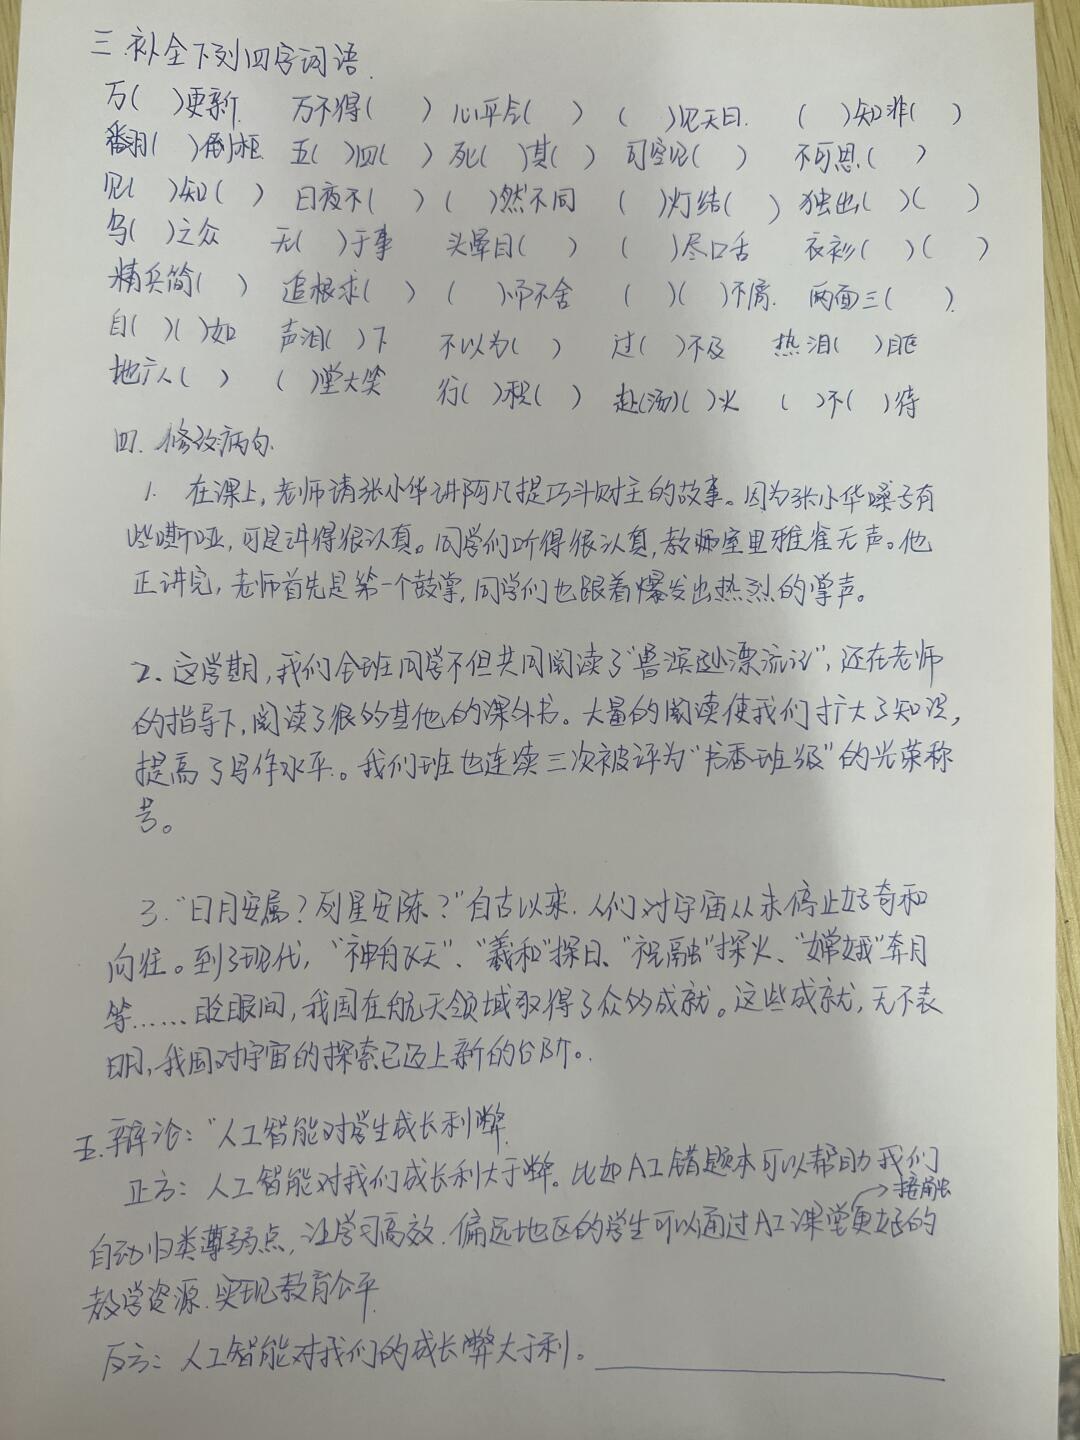 三.补全下列四字词语.
万( )更新. 万不得( ) 心平气( ) ( )见天日. ( )知非( )
翻( )倒柜 五( )四( ) 死( )其( ) 司空见( ) 不可思( )
见( )知( ) 日夜不( ) ( )然不同 ( )灯结( ) 独出( )( )
乌( )之众 无( )于事 头晕目( ) ( )尽口舌 衣衫( )( )
精兵简( ) 追根求( ) ( )而不舍 ( )( )不屑. 两面三( ).
自( )( )如 声泪( )下 不以为( ) 过( )不及 热泪( )眶
地广人( ) ( )堂大笑 行( )积( ) 赴(汤)( )火 ( )不( )待
四. 修改病句.
1. 在课上,老师请张小华讲阿凡提巧斗财主的故事。因为张小华嗓子有
些嘶哑,可是讲得很认真。同学们听得很认真,教师室里雅雀无声。他
正讲完,老师首先是第一个鼓掌,同学们也跟着爆发出热烈的掌声。
2、这学期,我们全班同学不但共同阅读了"鲁滨逊漂流记",还在老师
的指导下,阅读了很多其他的课外书。大量的阅读使我们扩大了知识,
提高了写作水平。我们班也连续三次被评为"书香班级"的光荣称
号。
3."日月安属?列星安陈?"自古以来,人们对宇宙从未停止好奇和
向往。到了现代,"神舟飞天"、"羲和"探日、"祝融"探火、"嫦娥"奔月
等……眨眼间,我国在航天领域取得了众多成就。这些成就,无不表
明,我国对宇宙的探索已迈上新的台阶。
五.辩论:"人工智能对学生成长利弊
正方:人工智能对我们成长利大于弊。比如AI错题本可以帮助我们
→接触
自动归类薄弱点,让学习高效.偏远地区的学生可以通过AI课堂更好的
教学资源.实现教育公平
反方:人工智能对我们的成长弊大于利。